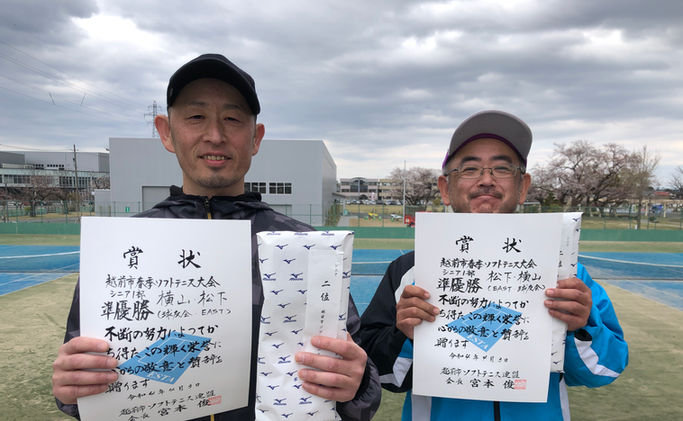 賞状
越前市春季ソフトテニス大会
シニア1部
準優勝
横山・松下
EAST)
不断の努力によってか
ち得たこの輝く栄誉に
心からの敬意と賛辞を
贈ります
令和4年4月3日
越前市ソフトテニス連盟
会長 宮本 俊
二位
MIZUNO
賞状
越前市春季ソフトテニス大会
シニア1部
準優勝
松下・横山
(EAST
不断の努力によってか
ち得たこの輝く栄誉に
心からの敬意と賛辞を
贈ります
令和4年4月3日
越前市ソフトテニス連盟
会長 宮本 俊